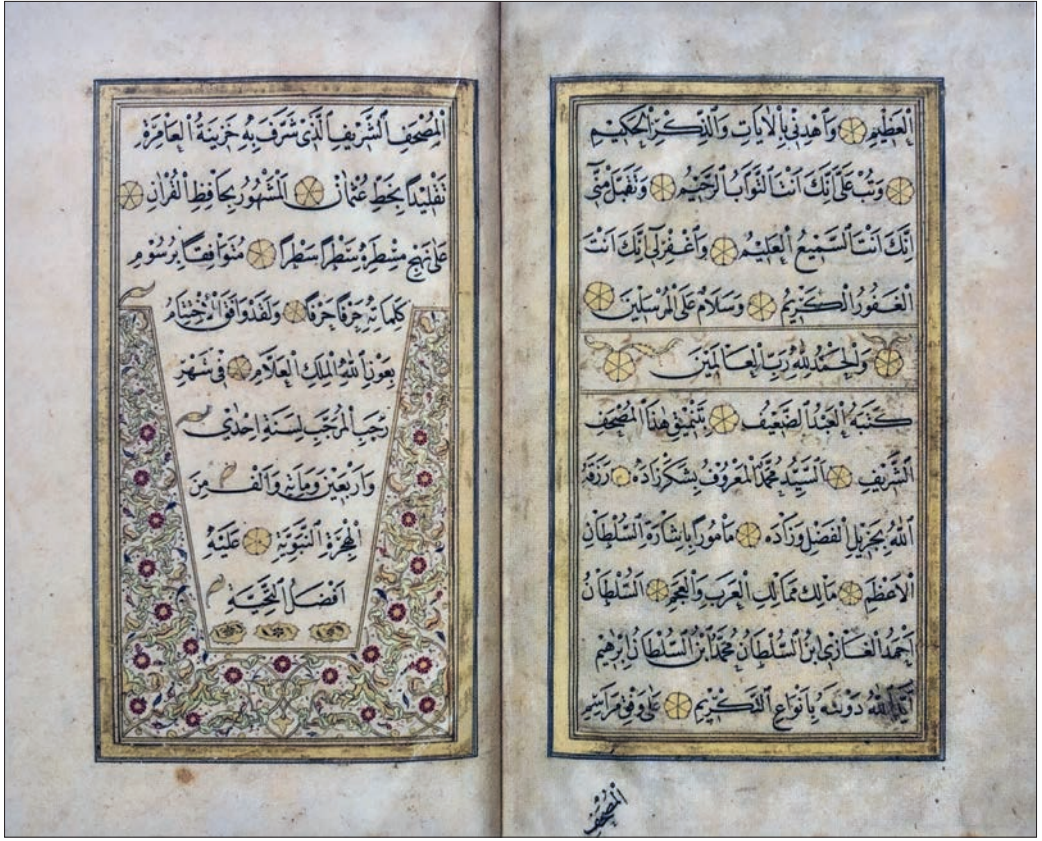 الْعَظِيمِ وَاَهْدِنِى بِالْاٰيَاتِ وَالذِّكْرِ الْحَكِيمِ
وَتُبْ عَلَىَّ اِنَّكَ اَنْتَ التَّوَّابُ الرَّحِيمُ وَتَقَبَّلْ مِنِّى
اِنَّكَ اَنْتَ السَّمِيعُ الْعَلِيمُ وَاغْفِرْ لِى اِنَّكَ اَنْتَ
الْغَفُورُ الْكَرِيمُ وَسَلَامٌ عَلَى الْمُرْسَلِينَ
وَالْحَمْدُ لِلّٰهِ رَبِّ الْعَالَمِينَ
كَتَبَهُ الْعَبْدُ الضَّعِيفُ بِتَنْمِيقِ هٰذَا الْمُصْحَفِ
الشَّرِيفِ السَّيِّدُ مُحَمَّدُ الْمَعْرُوفُ بِشَكَرْزَادَه رَزَقَهُ
اللّٰهُ بِجَزِيلِ الْفَضْلِ وَزَادَه مَأْمُورًا بِاِشَارَةِ السُّلْطَانِ
الْاَعْظَمِ مَالِكِ مَمَالِكِ الْعَرَبِ وَالْعَجَمِ السُّلْطَانُ
اَحْمَدُ الْغَازِى ابْنُ السُّلْطَانُ مُحَمَّدُ ابْنُ السُّلْطَانُ اِبْرٰهِيمُ
اَيَّدَ اللّٰهُ دَوْلَتَهُ بِاَنْوَاعِ التَّكْرِيمِ عَلَى وَفْقِ مَرَاسِمِ
الْمُصْحَفِ
الْمُصْحَفِ الشَّرِيفِ الَّذِى شَرَّفَ بِهِ خَزِينَةُ الْعَامِرَةِ
تَقْلِيدًا بِخَطِّ عُثْمَانَ الْمَشْهُورُ بِحَافِظِ الْقُرْاٰنِ
عَلَى نَهْجِ مِسْطَرِهُ سَطْرًا سَطْرًا مُتَوَافِقًا بِرُسُومِ
كَلِمَاتِهِ حَرْفًا حَرْفًا وَلَقَدْ وَافَقَ اخْتِتَام
بِعَوْنِ اللّٰهِ الْمَلِكِ الْعَلَّامِ فِى شَهْرِ
رَجَبِ الْمُرَجَّبِ لِسَنَةِ اِحْدٰى
وَاَرْبَعِينَ وَمِائَةٍ وَاَلْفٍ مِنَ
الْهِجْرَةِ النَّبَوِيَّةِ عَلَيْهِ
اَفْضَلُ التَّحِيَّةِ